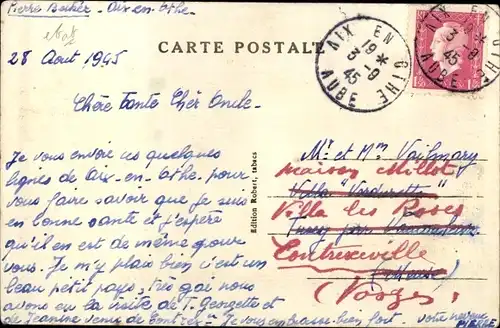 Pierre - Aix-en-Othe.
28 Aout 1945
CARTE POSTALE
AIX EN OTHE
19 *
3 -9
45
AUBE
Chère Tante Cher Oncle.
Je vous envoie ces quelques
lignes de Aix-en-Othe pour
vous faire savoir que je suis
en bonne santé et j'espère
qu'il en est de même pour
vous. Je m'y plais bien c'est un
beau petit pays, très gai nous
avons eu la visite de T. Georgette et
de Jeannine venis de
Je vous embrasse bien fort. votre neveu
Edition Robert, tabacs
Mr et Mm Vailmary
maison Millot
Villa
Villa les Roses
Contrexeville
(Vosges)